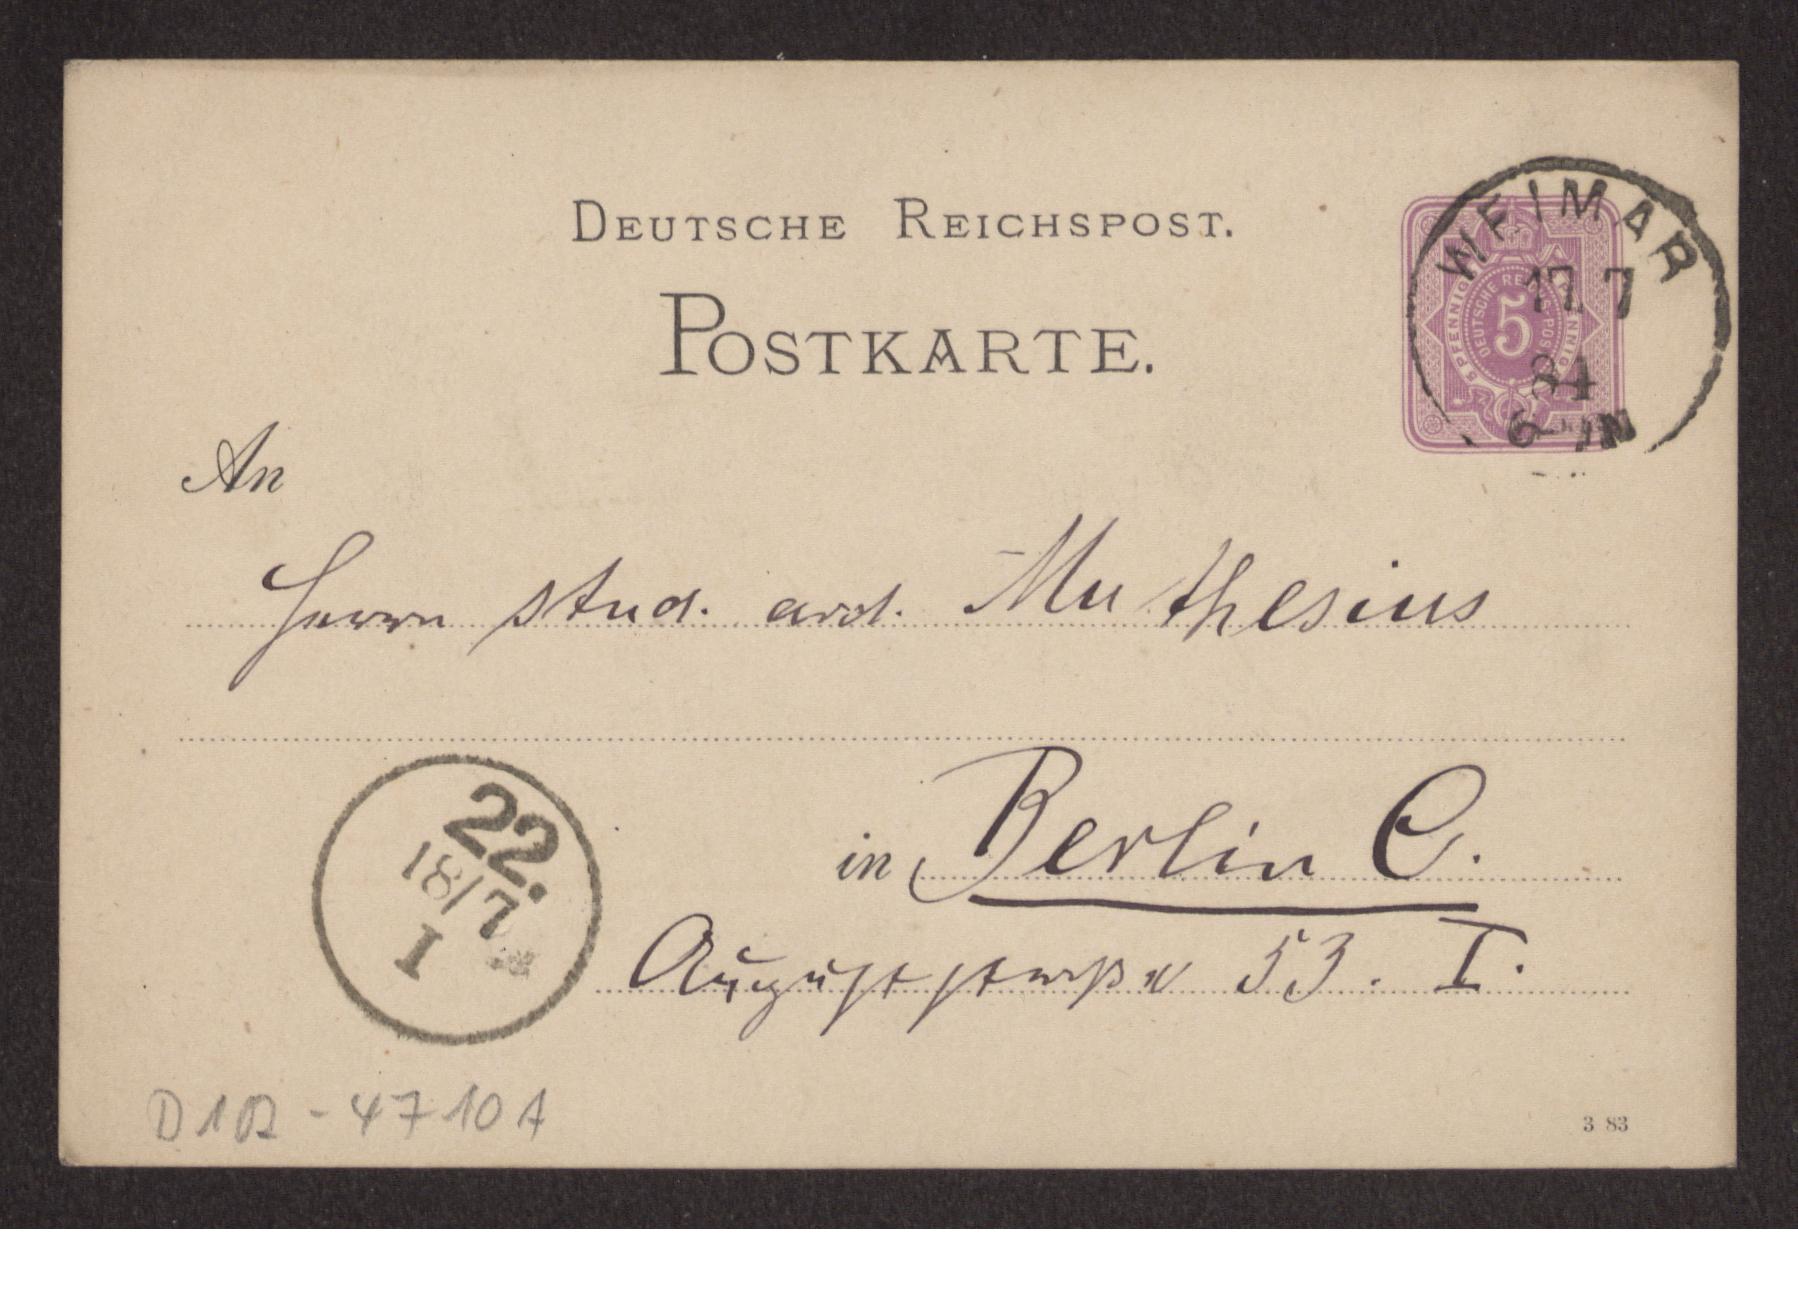 DEUTSCHE REICHSPOST.
POSTKARTE.
WEIMAR
17 7
84
6-7N
5 PFENNIG
DEUTSCHE REICHS-POST
5
An
Herrn stud. arch. Muthesius
in Berlin C.
Auguststraße 53. I.
22.
18/7
I
D102-4710A
3 83